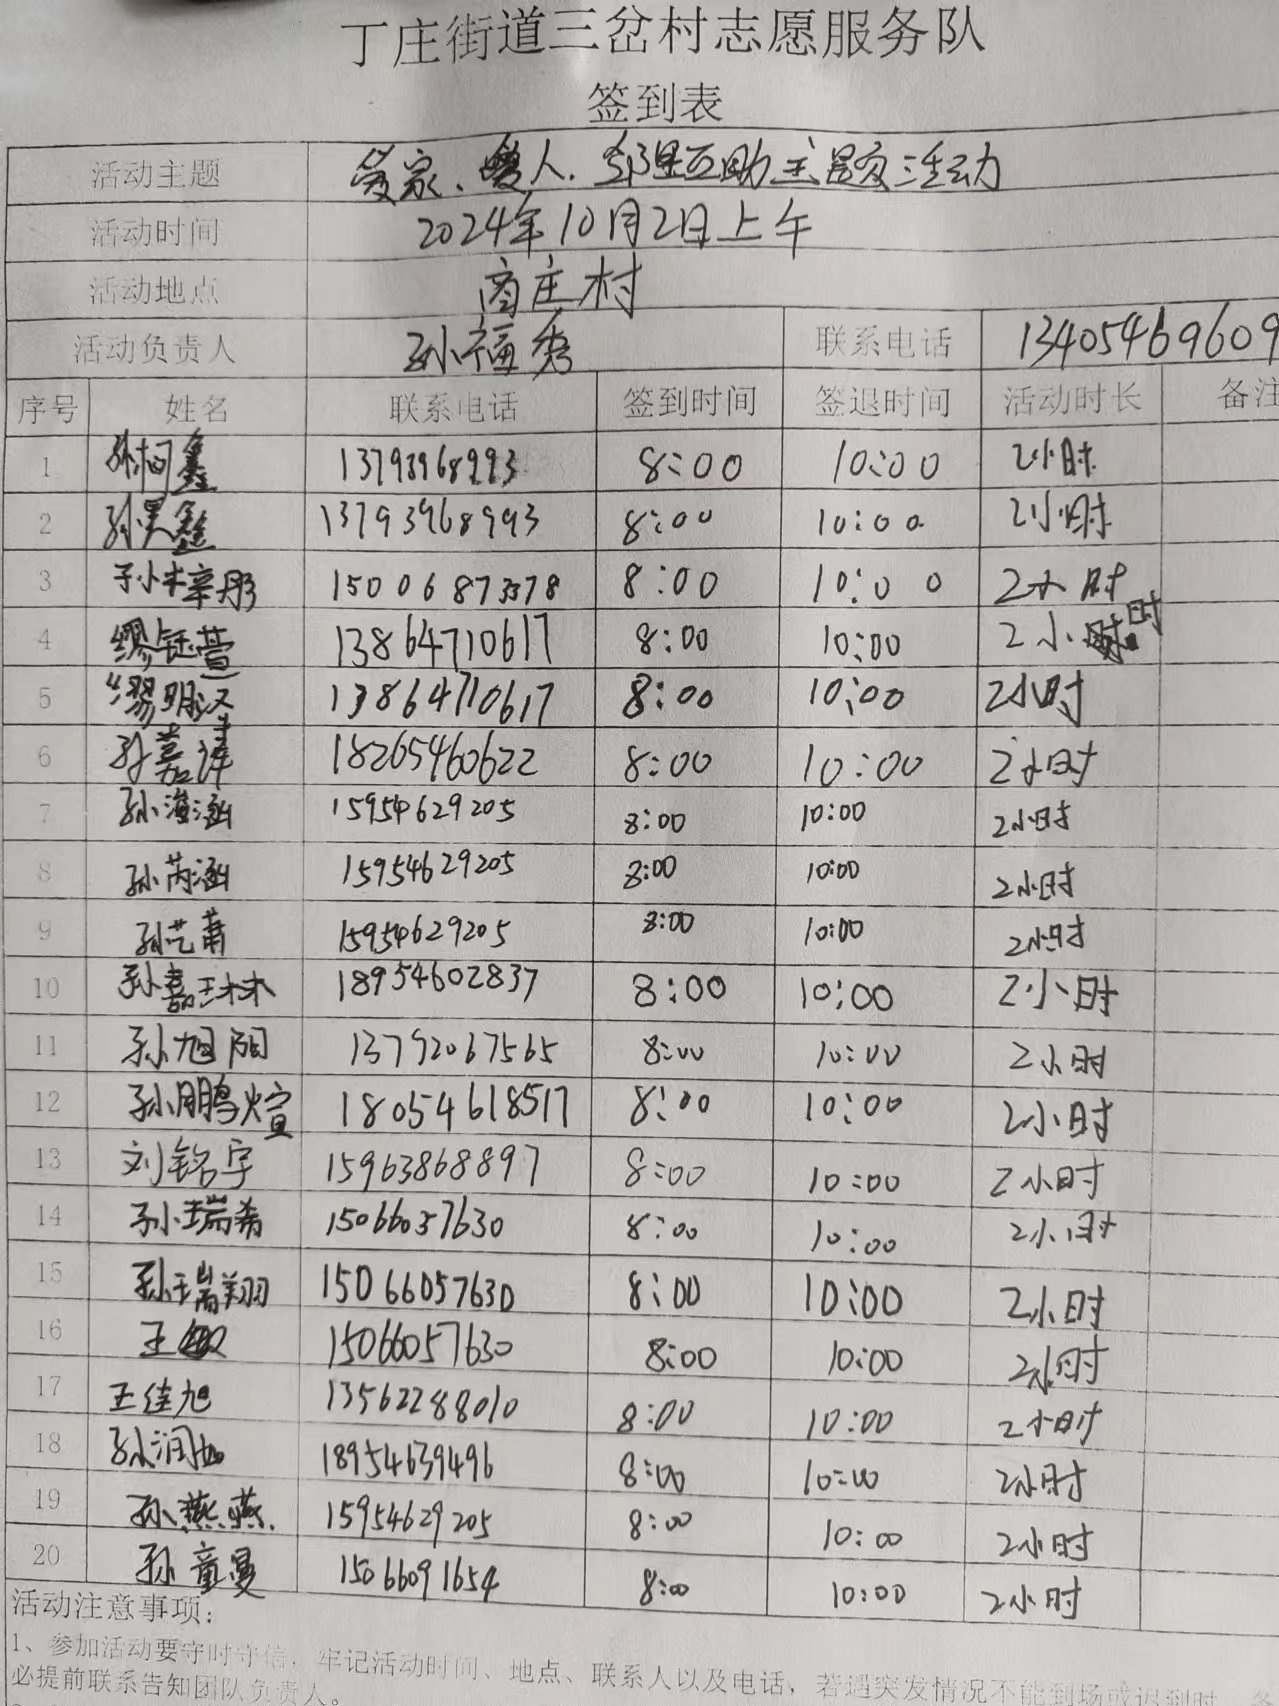 丁庄街道三岔村志愿服务队
签到表
活动主题 爱家、暖人、邻里互助主题活动
活动时间 2024年10月2日上午
活动地点 商庄村
活动负责人 孙福秀 联系电话 13405469609
序号 姓名 联系电话 签到时间 签退时间 活动时长 备注
1 孙柯鑫 13793968993 8:00 10:00 2小时
2 孙昊鑫 13793968993 8:00 10:00 2小时
3 孙梓彤 15006873378 8:00 10:00 2小时
4 缪钰萱 13864710617 8:00 10:00 2小时
5 缪明汉 13864710617 8:00 10:00 2小时
6 孙嘉泽 18265460622 8:00 10:00 2小时
7 孙海涵 15954629205 8:00 10:00 2小时
8 孙芮涵 15954629205 8:00 10:00 2小时
9 孙艺菁 15954629205 8:00 10:00 2小时
10 孙嘉琳 18954602837 8:00 10:00 2小时
11 孙旭阳 13792067565 8:00 10:00 2小时
12 孙鹏煊 18054618517 8:00 10:00 2小时
13 刘铭宇 15963868897 8:00 10:00 2小时
14 孙瑞希 15066057630 8:00 10:00 2小时
15 孙瑞翔 15066057630 8:00 10:00 2小时
16 王 15066057630 8:00 10:00 2小时
17 王佳旭 13562288010 8:00 10:00 2小时
18 孙润 18954639496 8:00 10:00 2小时
19 孙燕燕 15954629205 8:00 10:00 2小时
20 孙童曼 15066091654 8:00 10:00 2小时
活动注意事项：
1、参加活动要守时守信，牢记活动时间、地点、联系人以及电话，若遇突发情况不能到场或迟到时，务
必提前联系告知团队负责人。